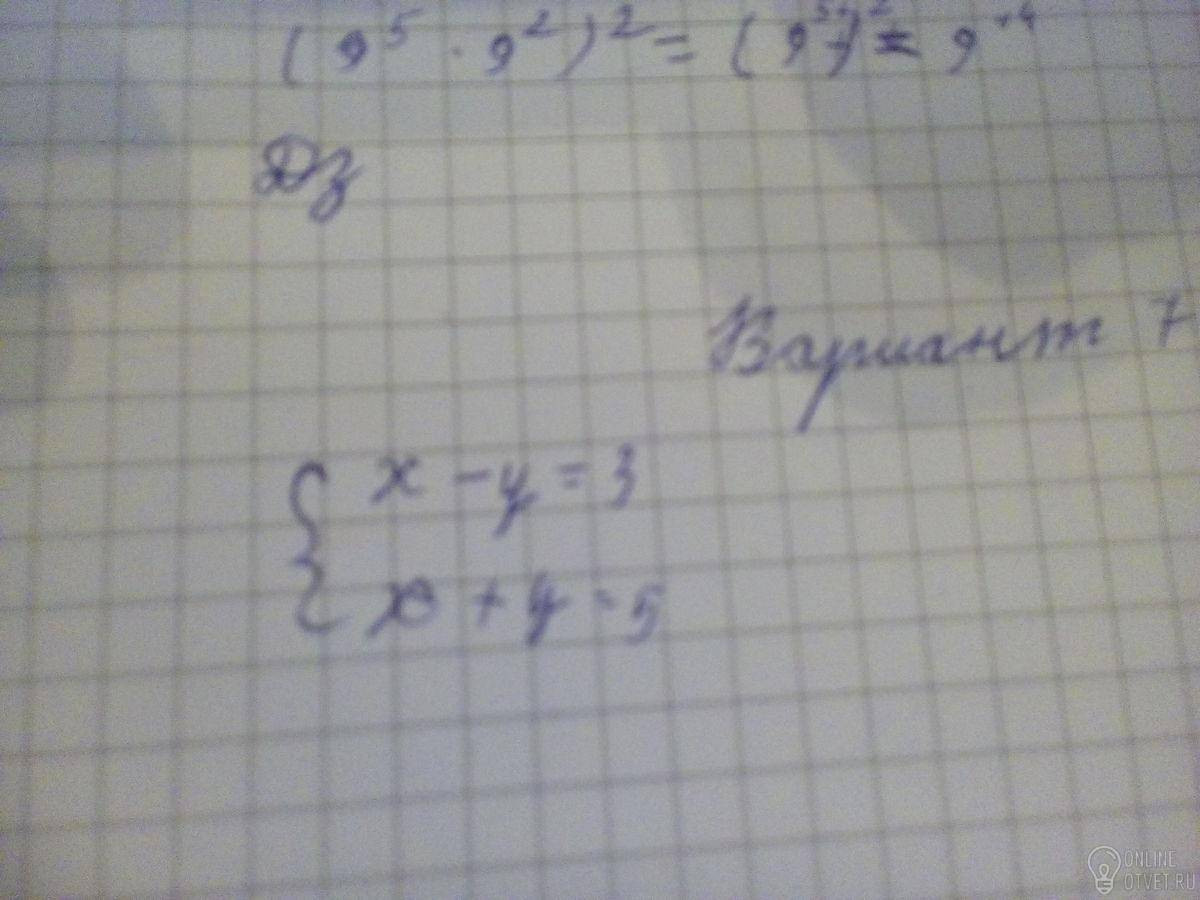 (9⁵ · 9²)² = (9⁷)² = 9¹⁴
Дз
Вариант 7
{ x - y = 3
x + y = 5
ONLINE
OTVET.RU